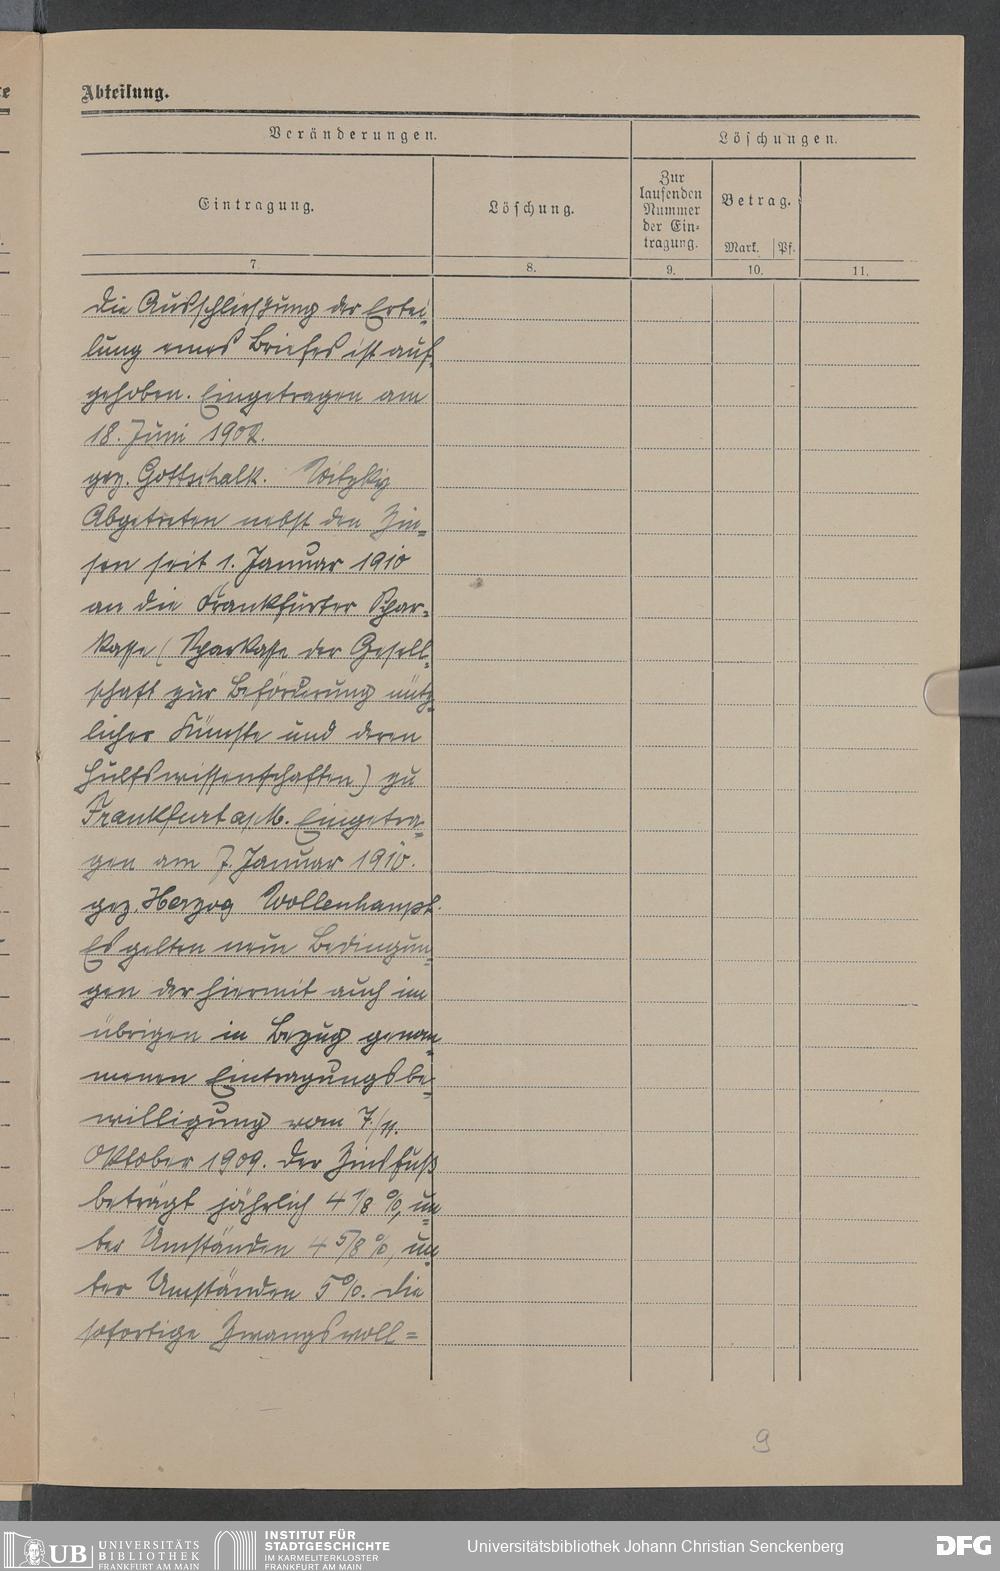 Abteilung.
Veränderungen.
Löschungen.
Eintragung.
Löschung.
Zur
laufenden
Nummer
der Ein-
tragung.
Betrag.
Mark.
Pf.
7.
8.
9.
10.
11.
Die Ausschließung der Ertei-
lung eines Briefes ist auf-
gehoben. Eingetragen am
18. Juni 1902.
gez. Gottschalk. Witzky
Abgetreten nebst den Zin-
sen seit 1. Januar 1910
an die Frankfurter Spar-
kasse (Sparkasse der Gesell-
schaft zur Beförderung nütz-
licher Künste und deren
Hülfswissenschaften) zu
Frankfurt a/M. Eingetra-
gen am 7. Januar 1910.
gez. Herzog Wollenhaupt.
Es gelten neue Bedingun-
gen der hiermit auch im
übrigen in Bezug genom-
menen Eintragungsbe-
willigung vom 7./11.
Oktober 1909. Der Zinsfuß
beträgt jährlich 4 1/8 %, un-
ter Umständen 4 5/8 %, un-
ter Umständen 5 %. Die
sofortige Zwangsvoll=
9
UB UNIVERSITÄTS
BIBLIOTHEK
FRANKFURT AM MAIN
INSTITUT FÜR
STADTGESCHICHTE
IM KARMELITERKLOSTER
FRANKFURT AM MAIN
Universitätsbibliothek Johann Christian Senckenberg
DFG